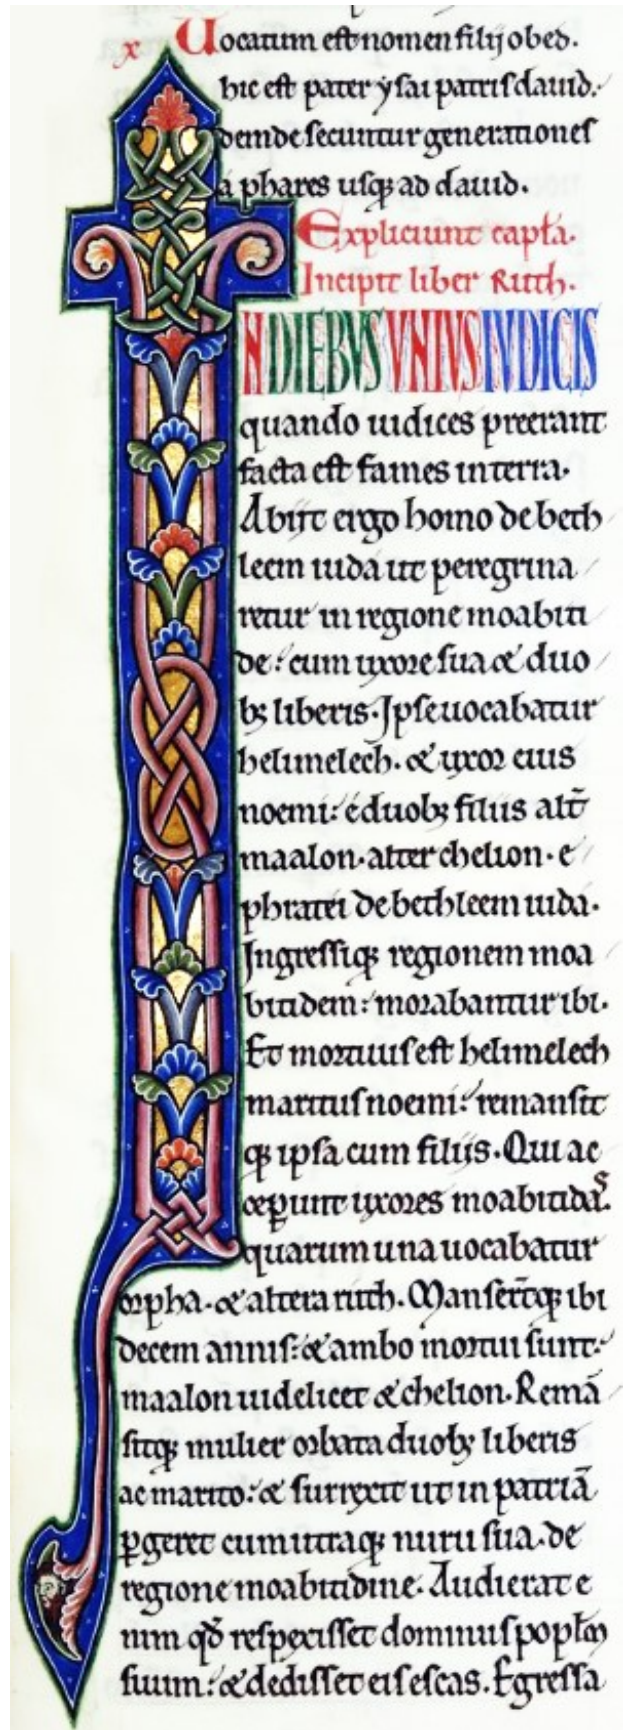 x Uocatum est nomen filij obed.
hic est pater ysai patris dauid.
deinde secuntur generationes
a phares usq; ad dauid.
Expliciunt capła.
Incipit liber Ruth.
IN DIEBUS UNIUS IUDICIS
quando iudices preerant
facta est fames in terra.
Abijt ergo homo de beth
leem iuda ut peregrina
retur in regione moabiti
de: cum uxore sua & duo
b; liberis. Ipse uocabatur
helimelech. & uxor eius
noemi: é duob; filiis alt̃
maalon. alter chelion. e
phratei de bethleem iuda.
Ingressiq; regionem moa
bitidem: morabantur ibi.
Et mortuus est helimelech
maritus noemi: remansit
q; ipsa cum filijs. Qui ac
ceꝑunt uxores moabitidas.
quarum una uocabatur
orpha. & altera ruth. Manser̃tq; ibi
decem annis: & ambo mortui sunt.
maalon uidelicet & chelion. Remā
sitq; mulier orbata duob; liberis
ac marito: & surrexit ut in patriā
ꝑgeret cum utraq; nuru sua. de
regione moabitidine. Audierat e
nim qđ respexisset dominus popłm
suum: & dedisset eis escas. Egressa